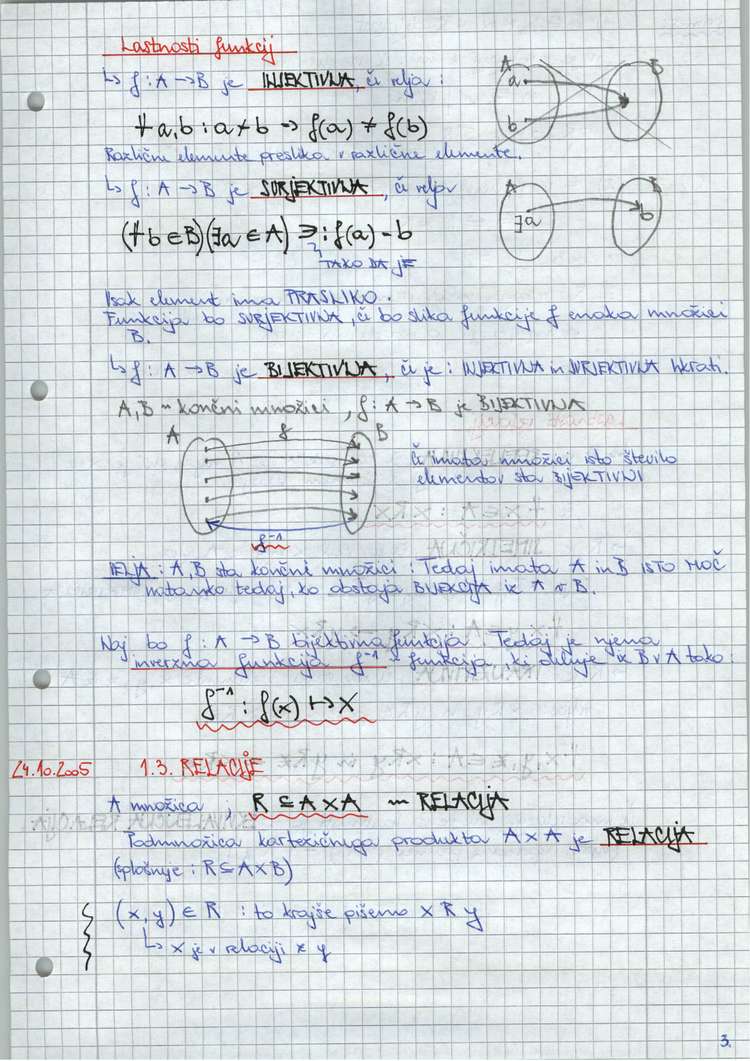 Lastnosti funkcij
↳ f: A → B je INJEKTIVNA, če velja:
∀ a,b : a ≠ b ⇒ f(a) ≠ f(b)
A
B
a
b
Različne elemente preslika v različne elemente.
↳ f: A → B je SURJEKTIVNA, če velja
(∀b ∈ B)(∃a ∈ A) ∋: f(a) = b
TAKO DA JE
A
B
∃a
b
Vsak element ima PRASLIKO.
Funkcija bo SURJEKTIVNA, če bo slika funkcije f enaka množici
B.
↳ f: A → B je BIJEKTIVNA, če je: INJEKTIVNA in SURJEKTIVNA hkrati.
A, B ~ končni množici, f: A → B je BIJEKTIVNA
A
f
B
f⁻¹
Če imata množici isto število
elementov sta BIJEKTIVNI
VELJA: A, B sta končni množici: Tedaj imata A in B ISTO MOČ
natanko tedaj, ko obstaja BIJEKCIJA iz A v B.
Naj bo f: A → B bijektivna funkcija. Tedaj je njena
inverzna funkcija f⁻¹ ~ funkcija, ki deluje iz B v A tako:
f⁻¹ : f(x) ↦ x
24.10.2005 1.3. RELACIJE
A množica; R ⊆ A×A ~ RELACIJA
Podmnožica kartezičnega produkta A×A je RELACIJA
(splošneje: R⊆A×B)
(x,y) ∈ R : to krajše pišemo x R y
↳ x je v relaciji z y
3.